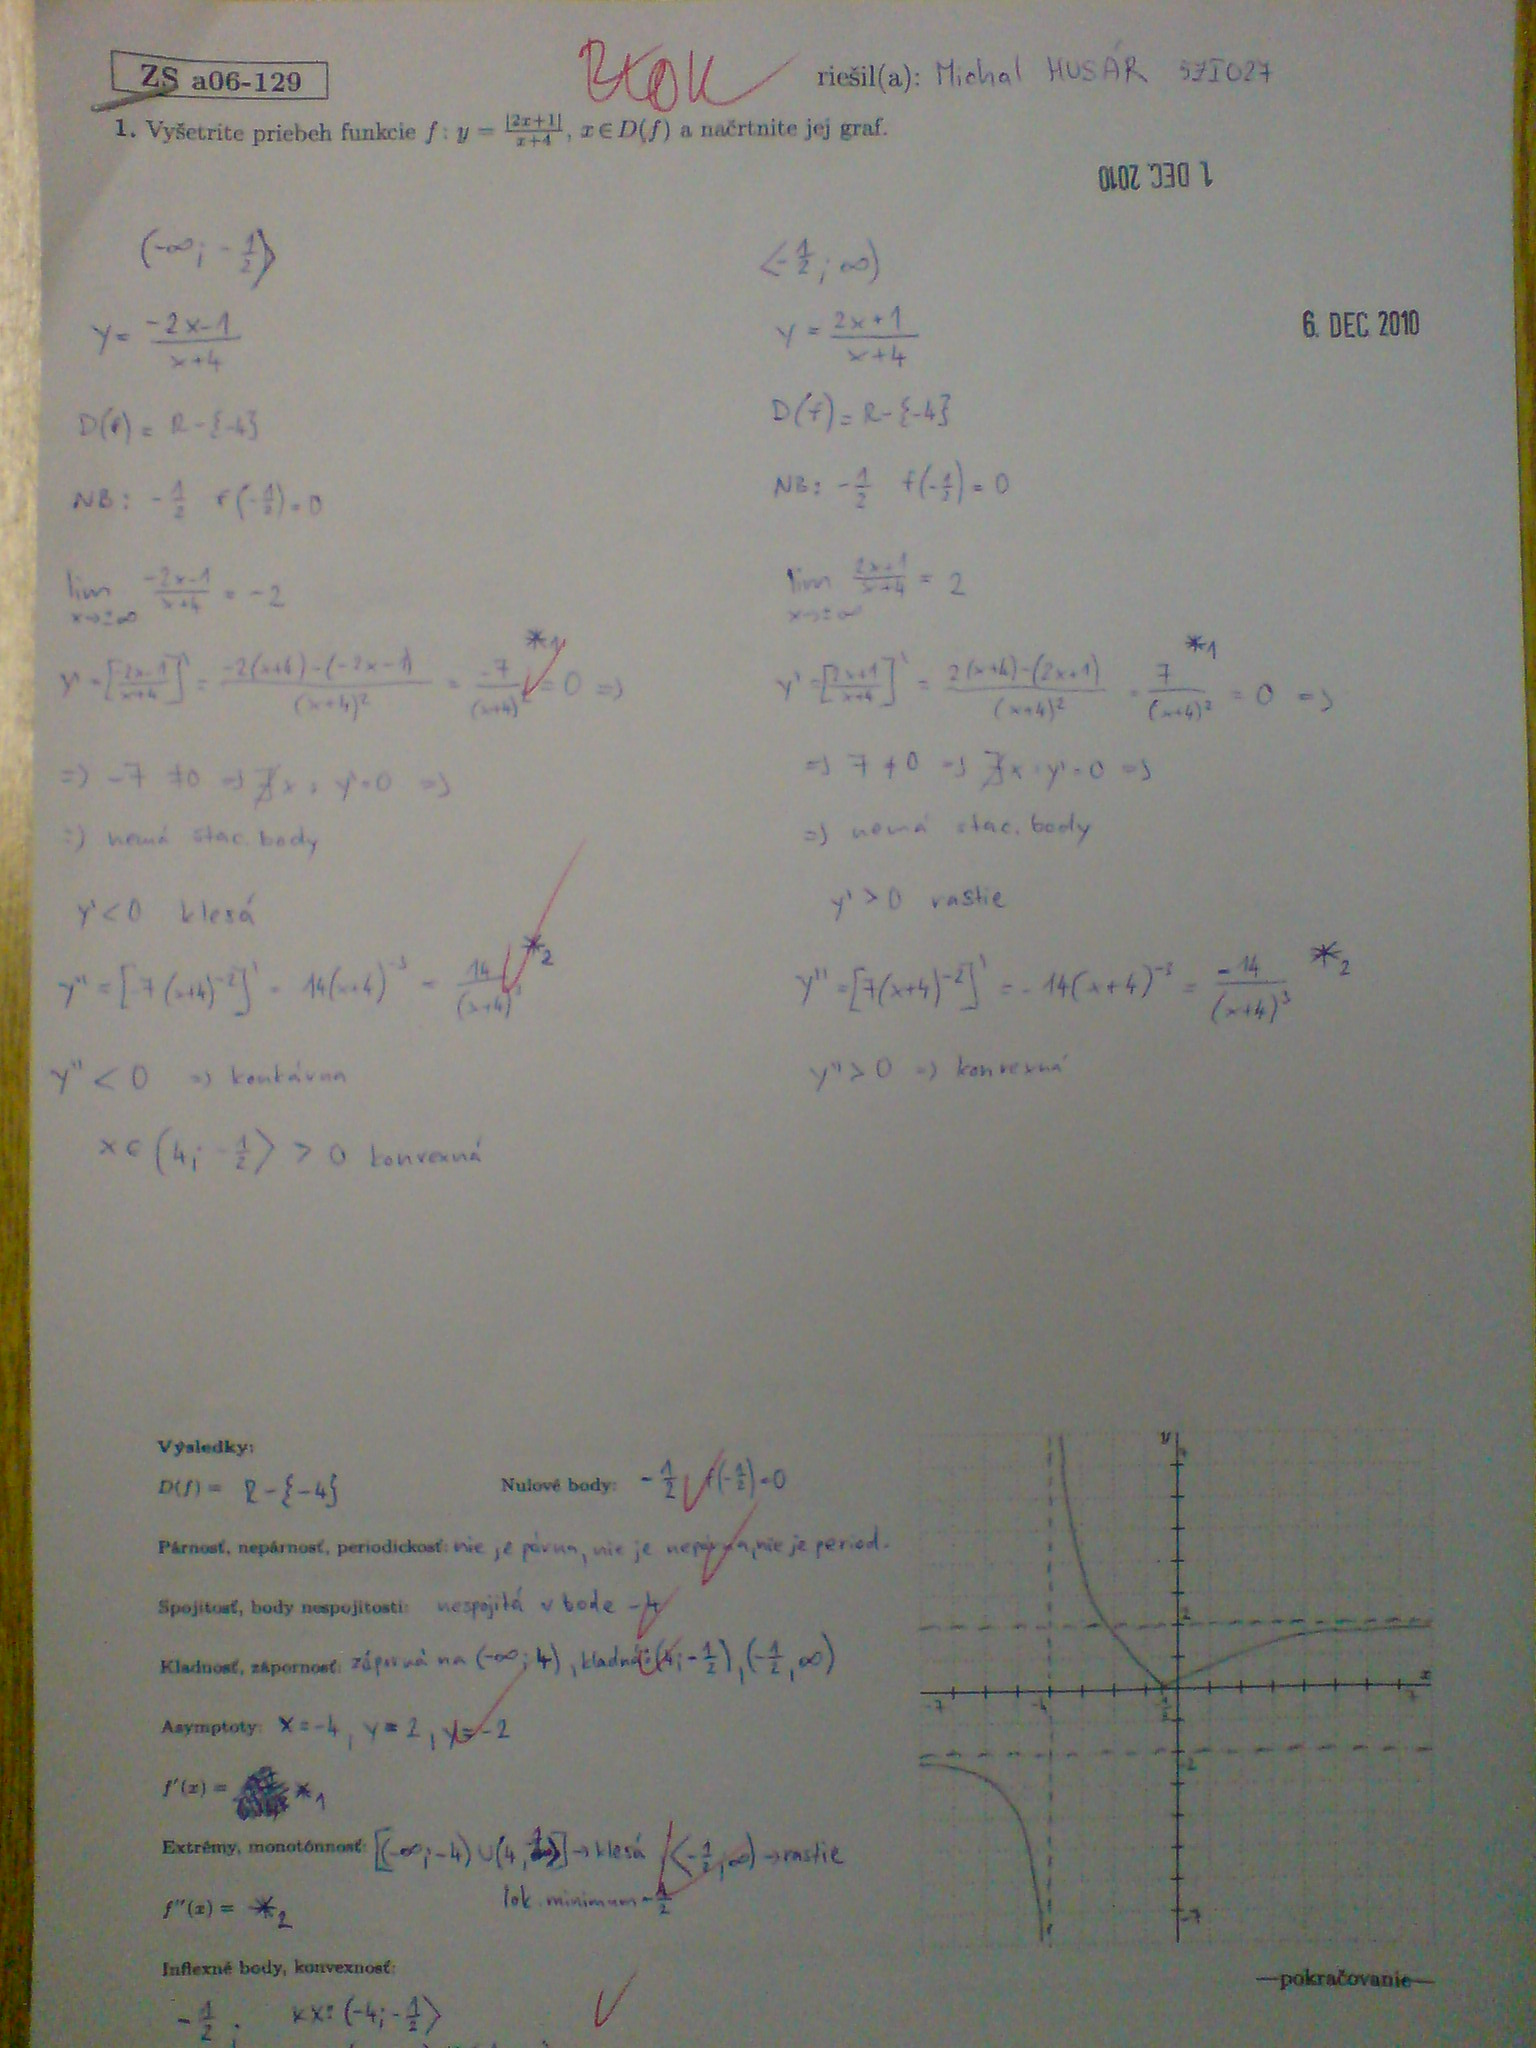 ZS a06-129
OK riešil(a): Michal HUSÁR 5ZI027
1. Vyšetrite priebeh funkcie f : y = |2x+1|/x+4, x∈D(f) a načrtnite jej graf.
1. DEC. 2010
6. DEC 2010
(-∞; -1/2⟩
y = -2x-1/x+4
D(f) = R-{-4}
NB: -1/2 f(-1/2)=0
lim x→±∞ -2x-1/x+4 = -2
y' = [-2x-1/x+4]' = -2(x+4)-(-2x-1)/(x+4)² = -7/(x+4)² *1 = 0 =>
=> -7 ≠0 => ∄x: y'=0 =>
=> nemá stac. body
y'<0 klesá
y'' = [7(x+4)⁻²]' = 14(x+4)⁻³ = 14/(x+4)³ *2
y'' < 0 => konkávna
x∈(4; -1/2⟩ > 0 konvexná
⟨-1/2; ∞)
y = 2x+1/x+4
D(f) = R-{-4}
NB: -1/2 f(-1/2)=0
lim x→±∞ 2x+1/x+4 = 2
y' = [2x+1/x+4]' = 2(x+4)-(2x+1)/(x+4)² = 7/(x+4)² *1 = 0 =>
=> 7≠0 => ∄x: y'=0 =>
=> nemá stac. body
y' > 0 rastie
y'' = [7(x+4)⁻²]' = -14(x+4)⁻³ = -14/(x+4)³ *2
y'' > 0 => konvexná
Výsledky:
D(f) = R-{-4} Nulové body: -1/2 f(-1/2)=0
Párnosť, nepárnosť, periodickosť: nie je párna, nie je nepárna, nie je period.
Spojitosť, body nespojitosti: nespojitá v bode -4
Kladnosť, zápornosť: záporná na (-∞; 4), kladná: (4; -1/2), (-1/2, ∞)
Asymptoty: x = -4, y = 2, y = -2
f'(x) = *1
Extrémy, monotónnosť: [(-∞; -4) ∪ (4, ⟩] → klesá ⟨-1/2, ∞) → rastie
lok. minimum -1/2
f''(x) = *2
Inflexné body, konvexnosť:
-1/2; KX: (-4; -1/2⟩
y
2
x
-7 -4 -1/2 7
-2
-7
—pokračovanie—